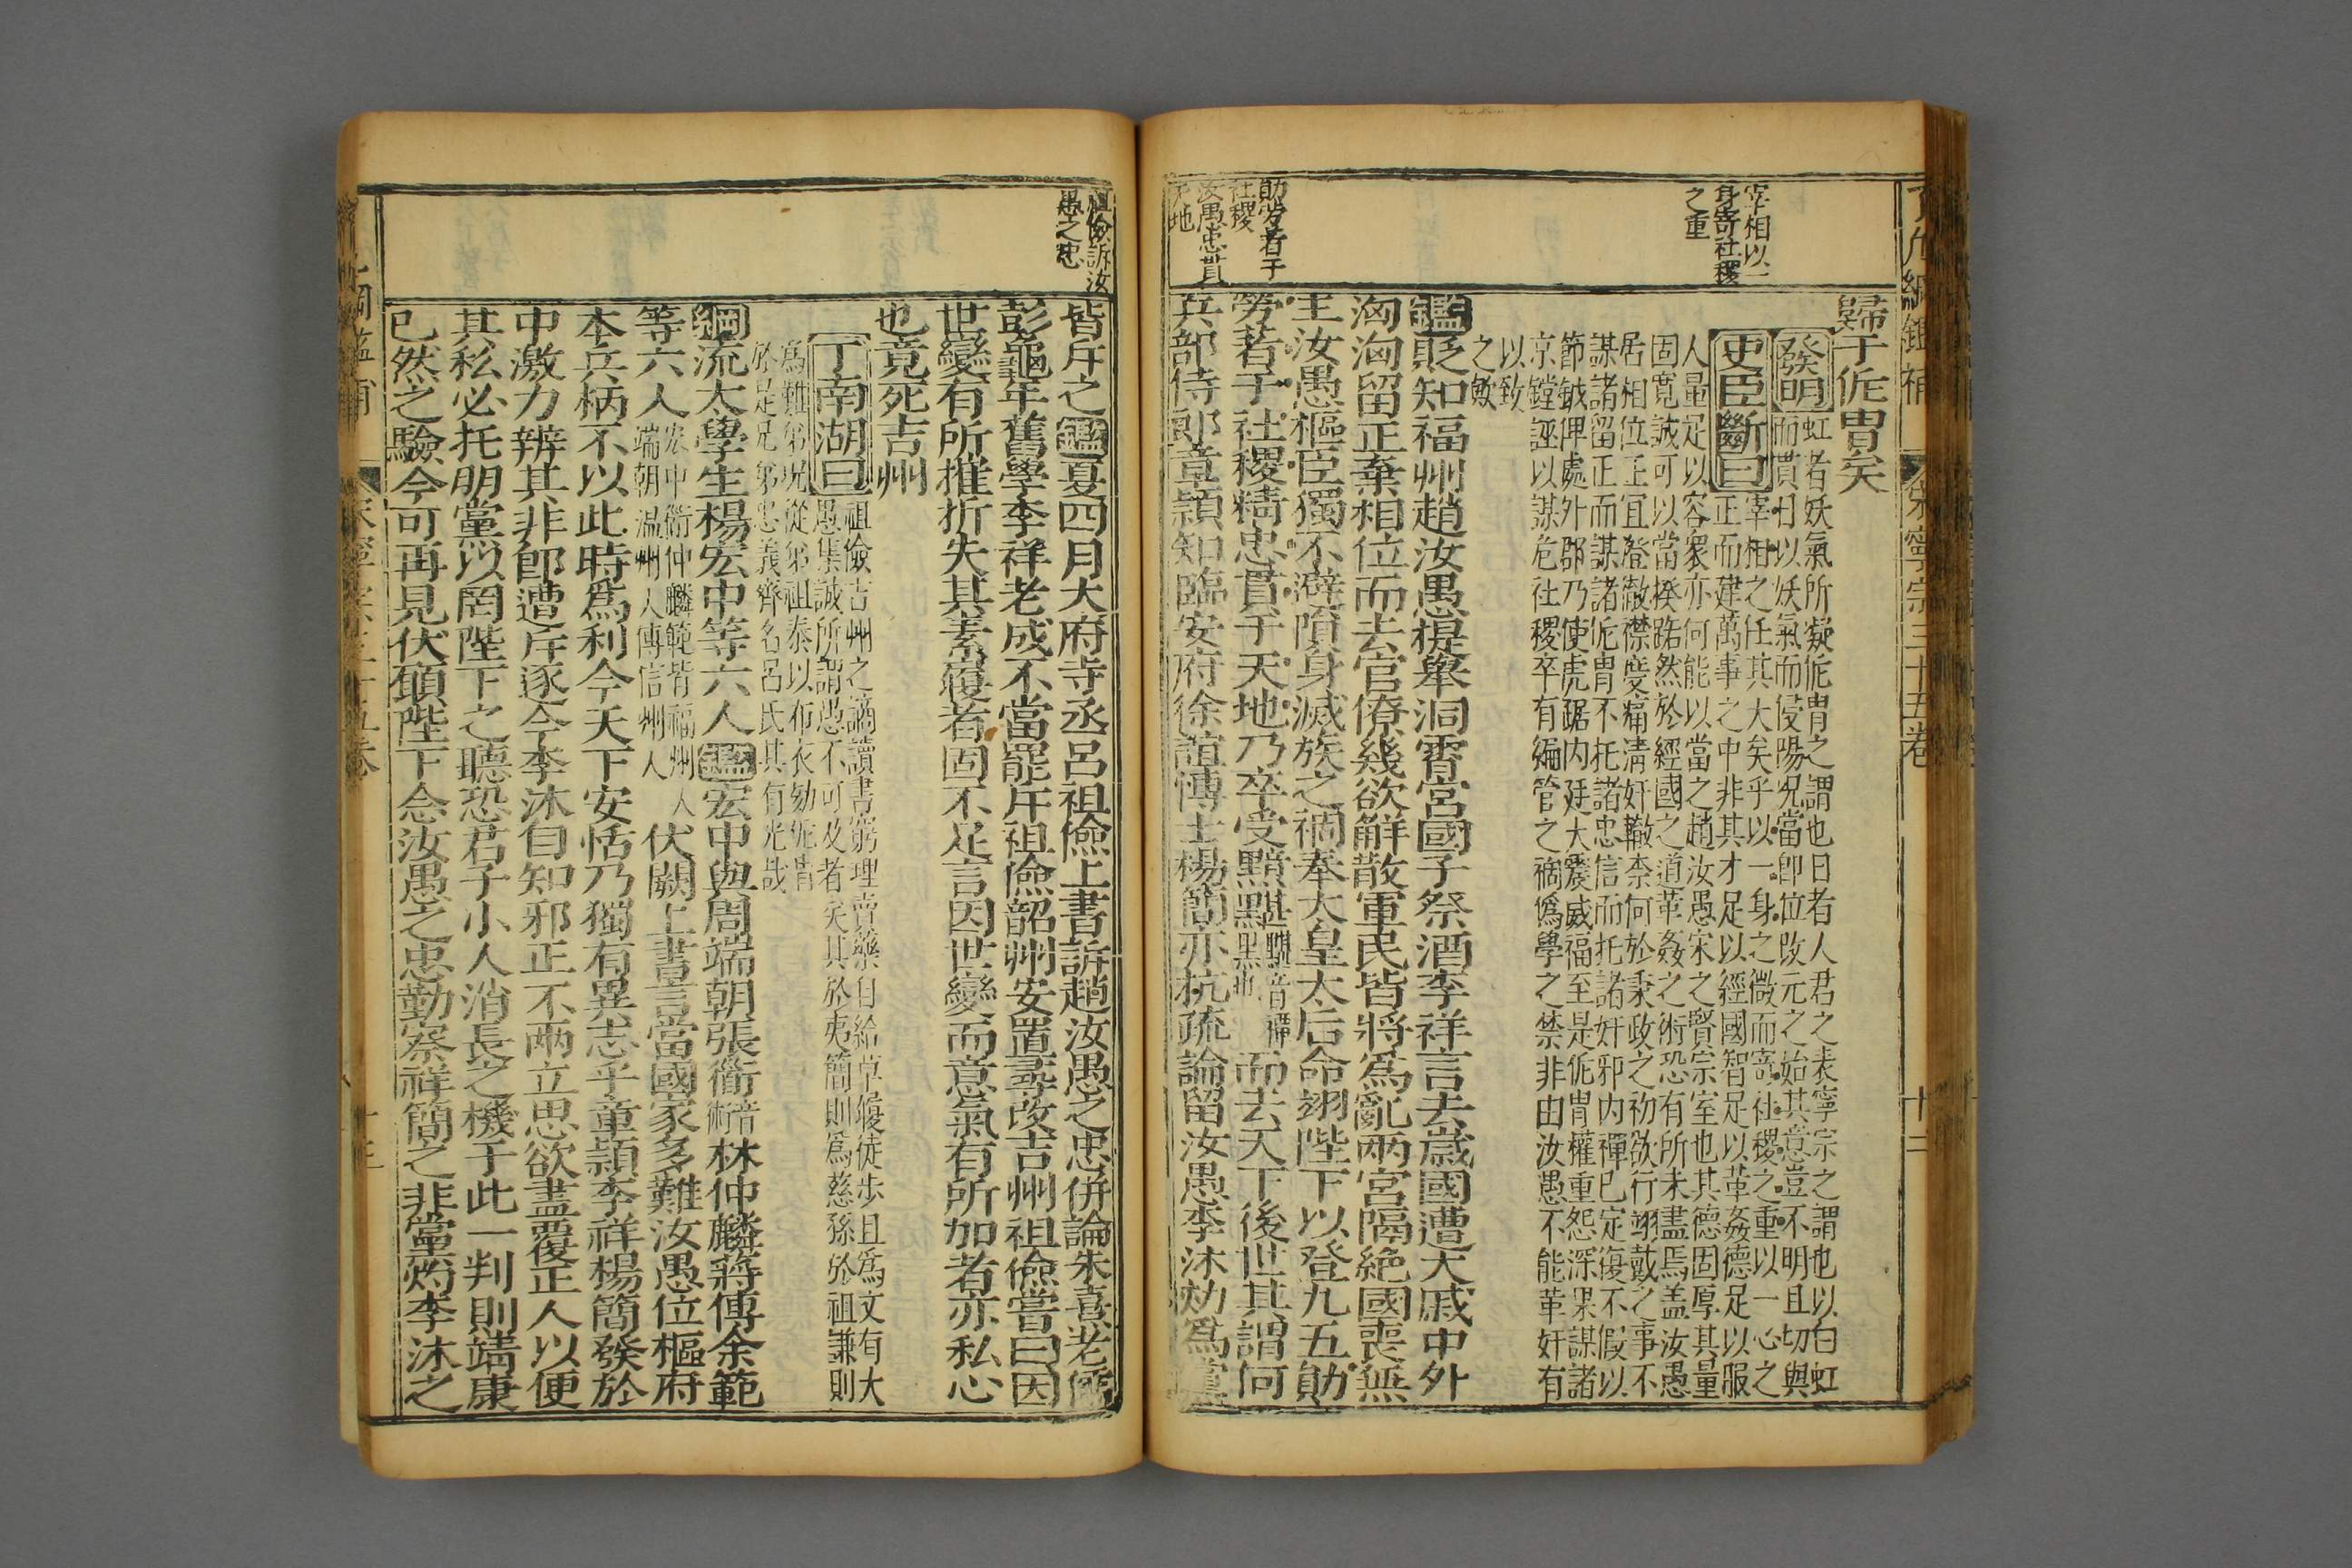 了凡綱鑑補 宋寧宗三十五卷 十二
宰相以一
身寄社稷
之重
勛勞著于
社稷
汝愚忠貫
天地
歸于侂胄矣
發明
虹者妖氣所凝侂胄之謂也日者人君之表寧宗之謂也以白虹
而貫日以妖氣而侵陽况當卽位改元之始其意豈不明且切與
史臣斷曰
宰相之任其大矣乎以一身之微而寄社稷之重以一心之
正而建萬事之中非其才足以經國智足以革姦德足以服
人量足以容衆亦何能以當之趙汝愚宋之賢宗室也其德固厚其量
固寛誠可以當揆路然於經國之道革姦之術恐有所未盡焉盖汝愚
居相位正宜登敞襟度痛清奸轍柰何於秉政之初欲行翊戴之事不
謀諸留正而謀諸侂胄不托諸忠信而托諸奸邪内禪已定復不假以
節鉞俾處外郡乃使虎踞内廷大震威福至是侂胄權重怨深果謀諸
京鏜誣以謀危社稷卒有竄管之禍僞學之禁非由汝愚不能革奸有
以致
之歟
鑑貶知福州趙汝愚提舉洞霄宫國子祭酒李祥言去歲國遭大戚中外
洶洶留正棄相位而去官僚幾欲解散軍民皆將爲亂兩宫隔絶國喪無
主汝愚樞臣獨不避隕身滅族之禍奉太皇太后命翊陛下以登九五勛
勞著于社稷精忠貫于天地乃卒受黯黮
黮音禫
黑也
而去天下後世其謂何
兵部侍郎章頴知臨安府徐誼博士楊簡亦抗疏論留汝愚李沐劾爲黨
祖儉訴汝
愚之忠
皆斥之鑑夏四月大府寺丞呂祖儉上書訴趙汝愚之忠併論朱熹老儒
彭龜年舊學李祥老成不當罷斥祖儉韶州安置尋改吉州祖儉嘗曰因
世變有所摧折失其素履者固不足言因世變而意氣有所加者亦私心
也竟死吉州
丁南湖曰
祖儉吉州之謫讀書窮理賣藥自給草屨徒步且爲文有大
愚集誠所謂愚不可及者矣其於夷簡則爲慈孫於祖謙則
爲難弟况從弟祖泰以布衣劾侂胄
於足兄弟忠義齊名呂氏其有光哉
綱流太學生楊宏中等六人鑑宏中與周端朝張衜
音
術
林仲麟蔣傅余範
等六人
宏中衜仲麟範皆福州人
端朝温州人傅信州人
伏闕上書言當國家多難汝愚位樞府
本兵柄不以此時爲利今天下安恬乃獨有異志乎章頴李祥楊簡發於
中激力辨其非卽遭斥逐今李沐自知邪正不兩立思欲盡覆正人以便
其私必托明黨以罔陛下之聽恐君子小人消長之機于此一判則靖康
已然之驗今可再見伏願陛下念汝愚之忠勤察祥簡之非黨灼李沐之